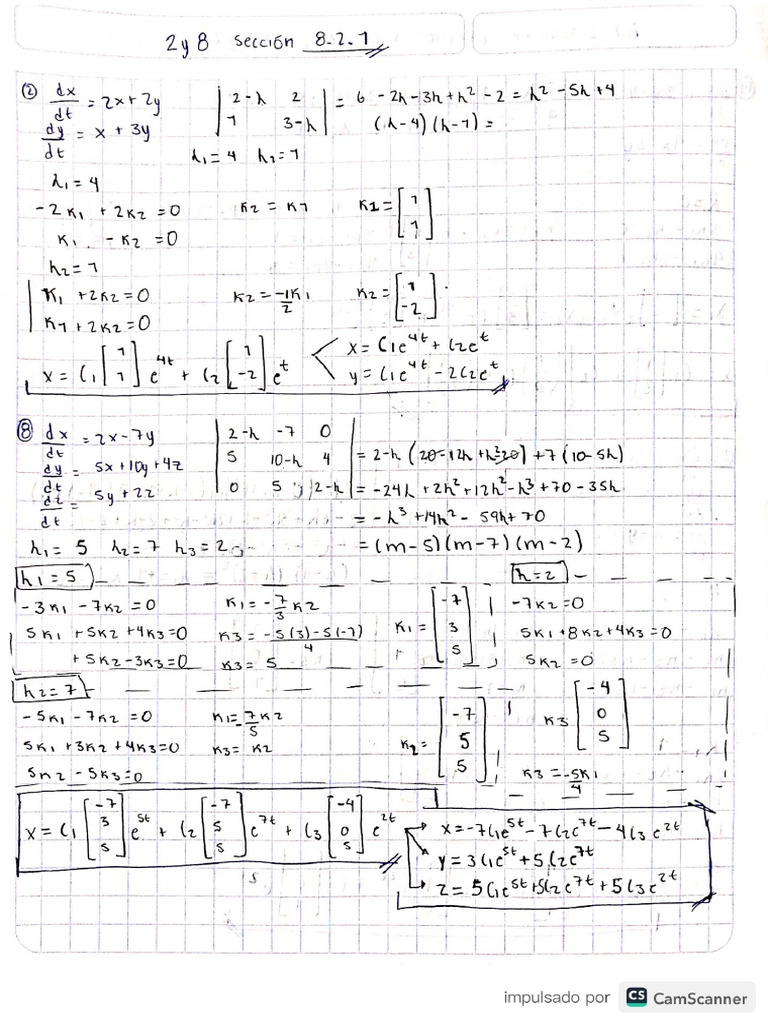 2 y 8 sección 8.2.1
② dx/dt = 2x + 2y
dy/dt = x + 3y
| 2-λ 2 |
| 1 3-λ | = 6 - 2λ - 3λ + λ² - 2 = λ² - 5λ + 4
(λ-4)(λ-1) =
λ₁ = 4 λ₂ = 1
λ₁ = 4
-2K₁ + 2K₂ = 0 K₂ = K1 K1 = [1 1]
K₁ - K₂ = 0
λ₂ = 1
K₁ + 2K₂ = 0 K₂ = -1/2 K₁ K₂ = [1 -2]
K1 + 2K₂ = 0
x = C₁ [1 1] e^4t + C₂ [1 -2] e^t
x = C₁e^4t + C₂e^t
y = C₁e^4t - 2C₂e^t
⑧ dx/dt = 2x - 7y
dy/dt = 5x + 10y + 4z
dz/dt = 5y + 2z
| 2-λ -7 0 |
| 5 10-λ 4 | = 2-λ (20 - 12λ + λ² - 20) + 7 (10 - 5λ)
| 0 5 2-λ | = -24λ + 2λ² + 12λ² - λ³ + 70 - 35λ
= -λ³ + 14λ² - 59λ + 70
λ₁ = 5 λ₂ = 7 λ₃ = 2 = (m-5)(m-7)(m-2)
λ₁ = 5
-3K₁ - 7K₂ = 0 K₁ = -7/3 K₂
5K₁ + 5K₂ + 4K₃ = 0 K₃ = -5(3)-5(-7)/4 K₁ = [-7 3 5]
+ 5K₂ - 3K₃ = 0 K₃ = 5
λ = 2
-7K₂ = 0
5K₁ + 8K₂ + 4K₃ = 0
5K₂ = 0
λ₂ = 7
-5K₁ - 7K₂ = 0 K₁ = -7/5 K₂
5K₁ + 3K₂ + 4K₃ = 0 K₃ = K₂ K₂ = [-7 5 5]
5K₂ - 5K₃ = 0
K₃ [-4 0 5]
K₃ = -5K₁/4
x = C₁ [-7 3 5] e^5t + C₂ [-7 5 5] e^7t + C₃ [-4 0 5] e^2t
x = -7C₁e^5t - 7C₂e^7t - 4C₃e^2t
y = 3C₁e^5t + 5C₂e^7t
z = 5C₁e^5t + 5C₂e^7t + 5C₃e^2t
impulsado por CS CamScanner